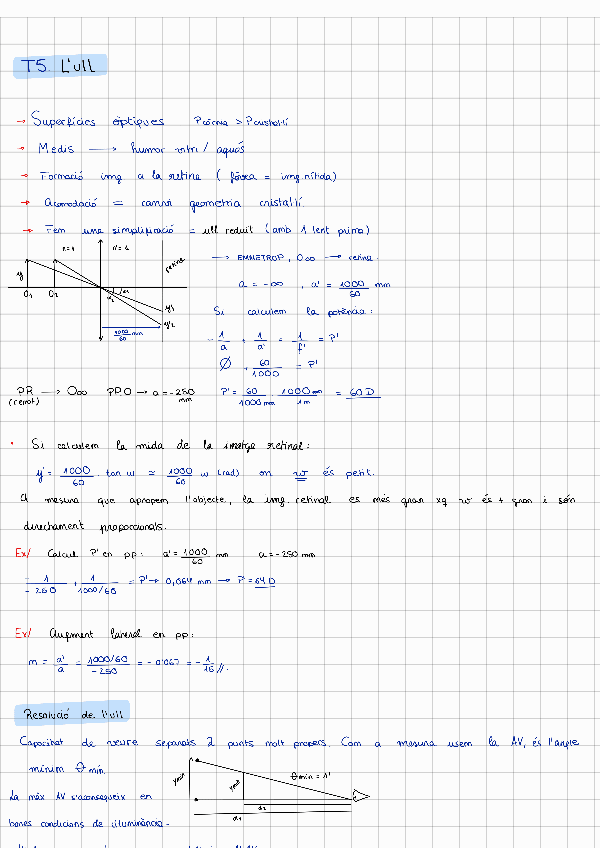 T5. L'ull
→ Superfícies òptiques Pcòrnia > Pcristal·lí
→ Medis → humor vitri / aquós
→ Formació img a la retina ( fòvea = img nítida)
→ Acomodació = canvi geometria cristal·lí
→ Fem una simplificació = ull reduït (amb 1 lent prima)
n=1 n'=1 retina
→ EMMETROP, O∞ → retina.
y O1 O2 w1 w2 y'1 y'2
a = -∞ , a' = 1000/60 mm
1000/60 mm
Si calculem la potència:
- 1/a + 1/a' = 1/f' = P'
Ø + 60/1000 = P'
PR → O∞ PPO → a = -250 mm P' = 60/1000mm · 1000mm/1m = 60 D
(remot)
• Si calculem la mida de la imatge retinal:
y' = 1000/60 · tan w ≃ 1000/60 w (rad) on w és petit.
A mesura que apropem l'objecte, la img. retinal es més gran xq w és + gran i són
directament proporcionals.
Ex/ Calcul P' en pp: a' = 1000/60 mm a = -250 mm
- 1/-250 + 1/1000/60 = P' → 0,064 mm → P' = 64 D
Ex/ Augment lateral en pp:
m = a'/a = 1000/60/-250 = -0'067 = -1/15 //.
Resolució de l'ull
Capacitat de veure separats 2 punts molt propers. Com a mesura usem la AV, és l'angle
mínim θ mín.
ymin ymin θmín = 1'
La màx AV s'aconsegueix en
d2
d1
bones condicions de il·luminància.